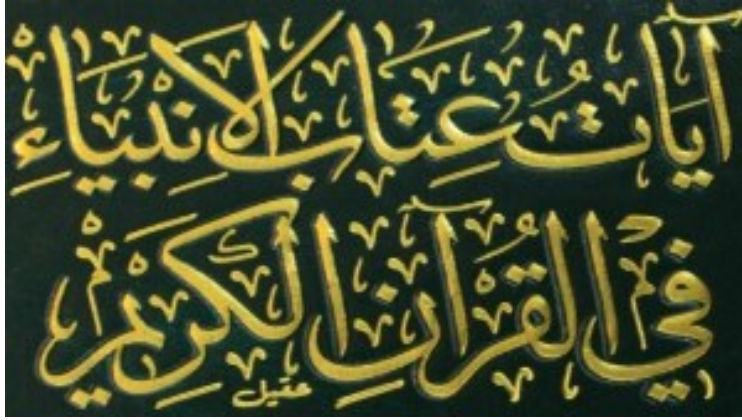 آيَاتُ عِتَابِ الأَنْبِيَاءِ
فِي القُرْآنِ الكَرِيْمِ
عقيل